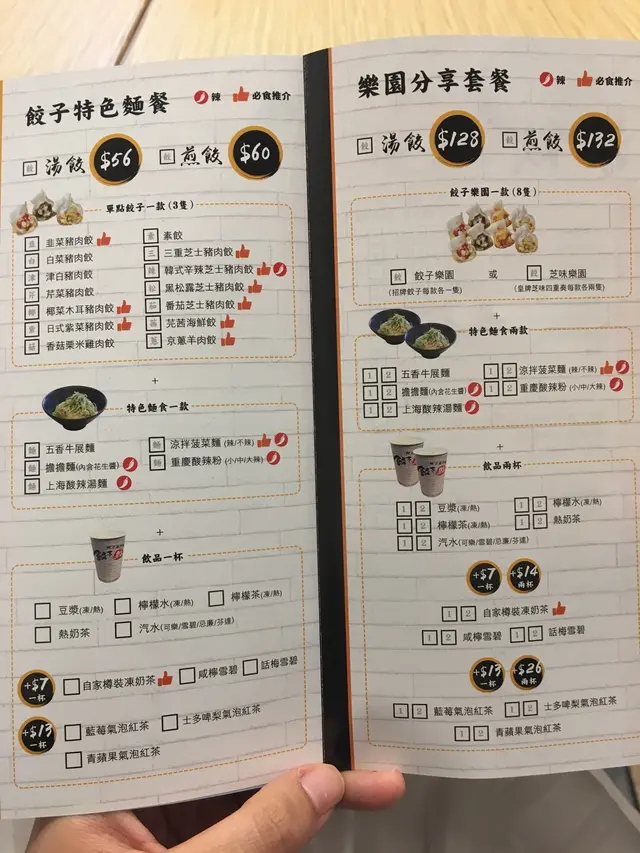 餃子特色麵餐 辣 必食推介
餃 湯餃 $56 餃 煎餃 $60
單點餃子一款(3隻)
韭 韭菜豬肉餃
白 白菜豬肉餃
津 津白豬肉餃
芹 芹菜豬肉餃
椰 椰菜木耳豬肉餃
紫 日式紫菜豬肉餃
菇 香菇栗米雞肉餃
素 素餃
三 三重芝士豬肉餃
辣 韓式辛辣芝士豬肉餃
松 黑松露芝士豬肉餃
蕃 番茄芝士豬肉餃
芫茜海鮮餃
蔥 京蔥羊肉餃
+
特色麵食一款
麵 五香牛展麵
麵 擔擔麵(內含花生醬)
麵 上海酸辣湯麵
麵 涼拌菠菜麵(辣/不辣)
麵 重慶酸辣粉(小/中/大辣)
+
飲品一杯
豆漿(凍/熱) 檸檬水(凍/熱) 檸檬茶(凍/熱)
熱奶茶 汽水(可樂/雪碧/忌廉/芬達)
+$7 一杯 自家樽裝凍奶茶 咸檸雪碧 話梅雪碧
+$13 一杯 藍莓氣泡紅茶 士多啤梨氣泡紅茶
青蘋果氣泡紅茶
樂園分享套餐 辣 必食推介
餃 湯餃 $128 餃 煎餃 $132
餃子樂園一款(8隻)
餃 餃子樂園 或 餃 芝味樂園
(招牌餃子每款各一隻) (皇牌芝味四重奏每款各兩隻)
+
特色麵食兩款
1 2 五香牛展麵
1 2 擔擔麵(內含花生醬)
1 2 上海酸辣湯麵
1 2 涼拌菠菜麵(辣/不辣)
1 2 重慶酸辣粉(小/中/大辣)
+
飲品兩杯
1 2 豆漿(凍/熱) 1 2 檸檬水(凍/熱)
1 2 檸檬茶(凍/熱) 1 2 熱奶茶
1 2 汽水(可樂/雪碧/忌廉/芬達)
+$7 一杯 +$14 兩杯
1 2 自家樽裝凍奶茶
1 2 咸檸雪碧 1 2 話梅雪碧
+$13 一杯 +$26 兩杯
1 2 藍莓氣泡紅茶 1 2 士多啤梨氣泡紅茶
1 2 青蘋果氣泡紅茶